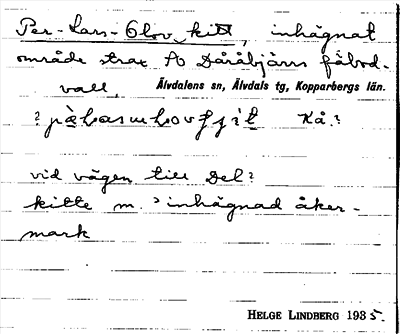 Per-Lars-Olov kitt, inhägnat
område strax Ö Dåråbjärns fäbod-
vall,
Älvdalens sn, Älvdals tg, Kopparbergs län.
Kå.?
vid vägen till Del?
kitte m. 'inhägnad åker-
mark
HELGE LINDBERG 1935.